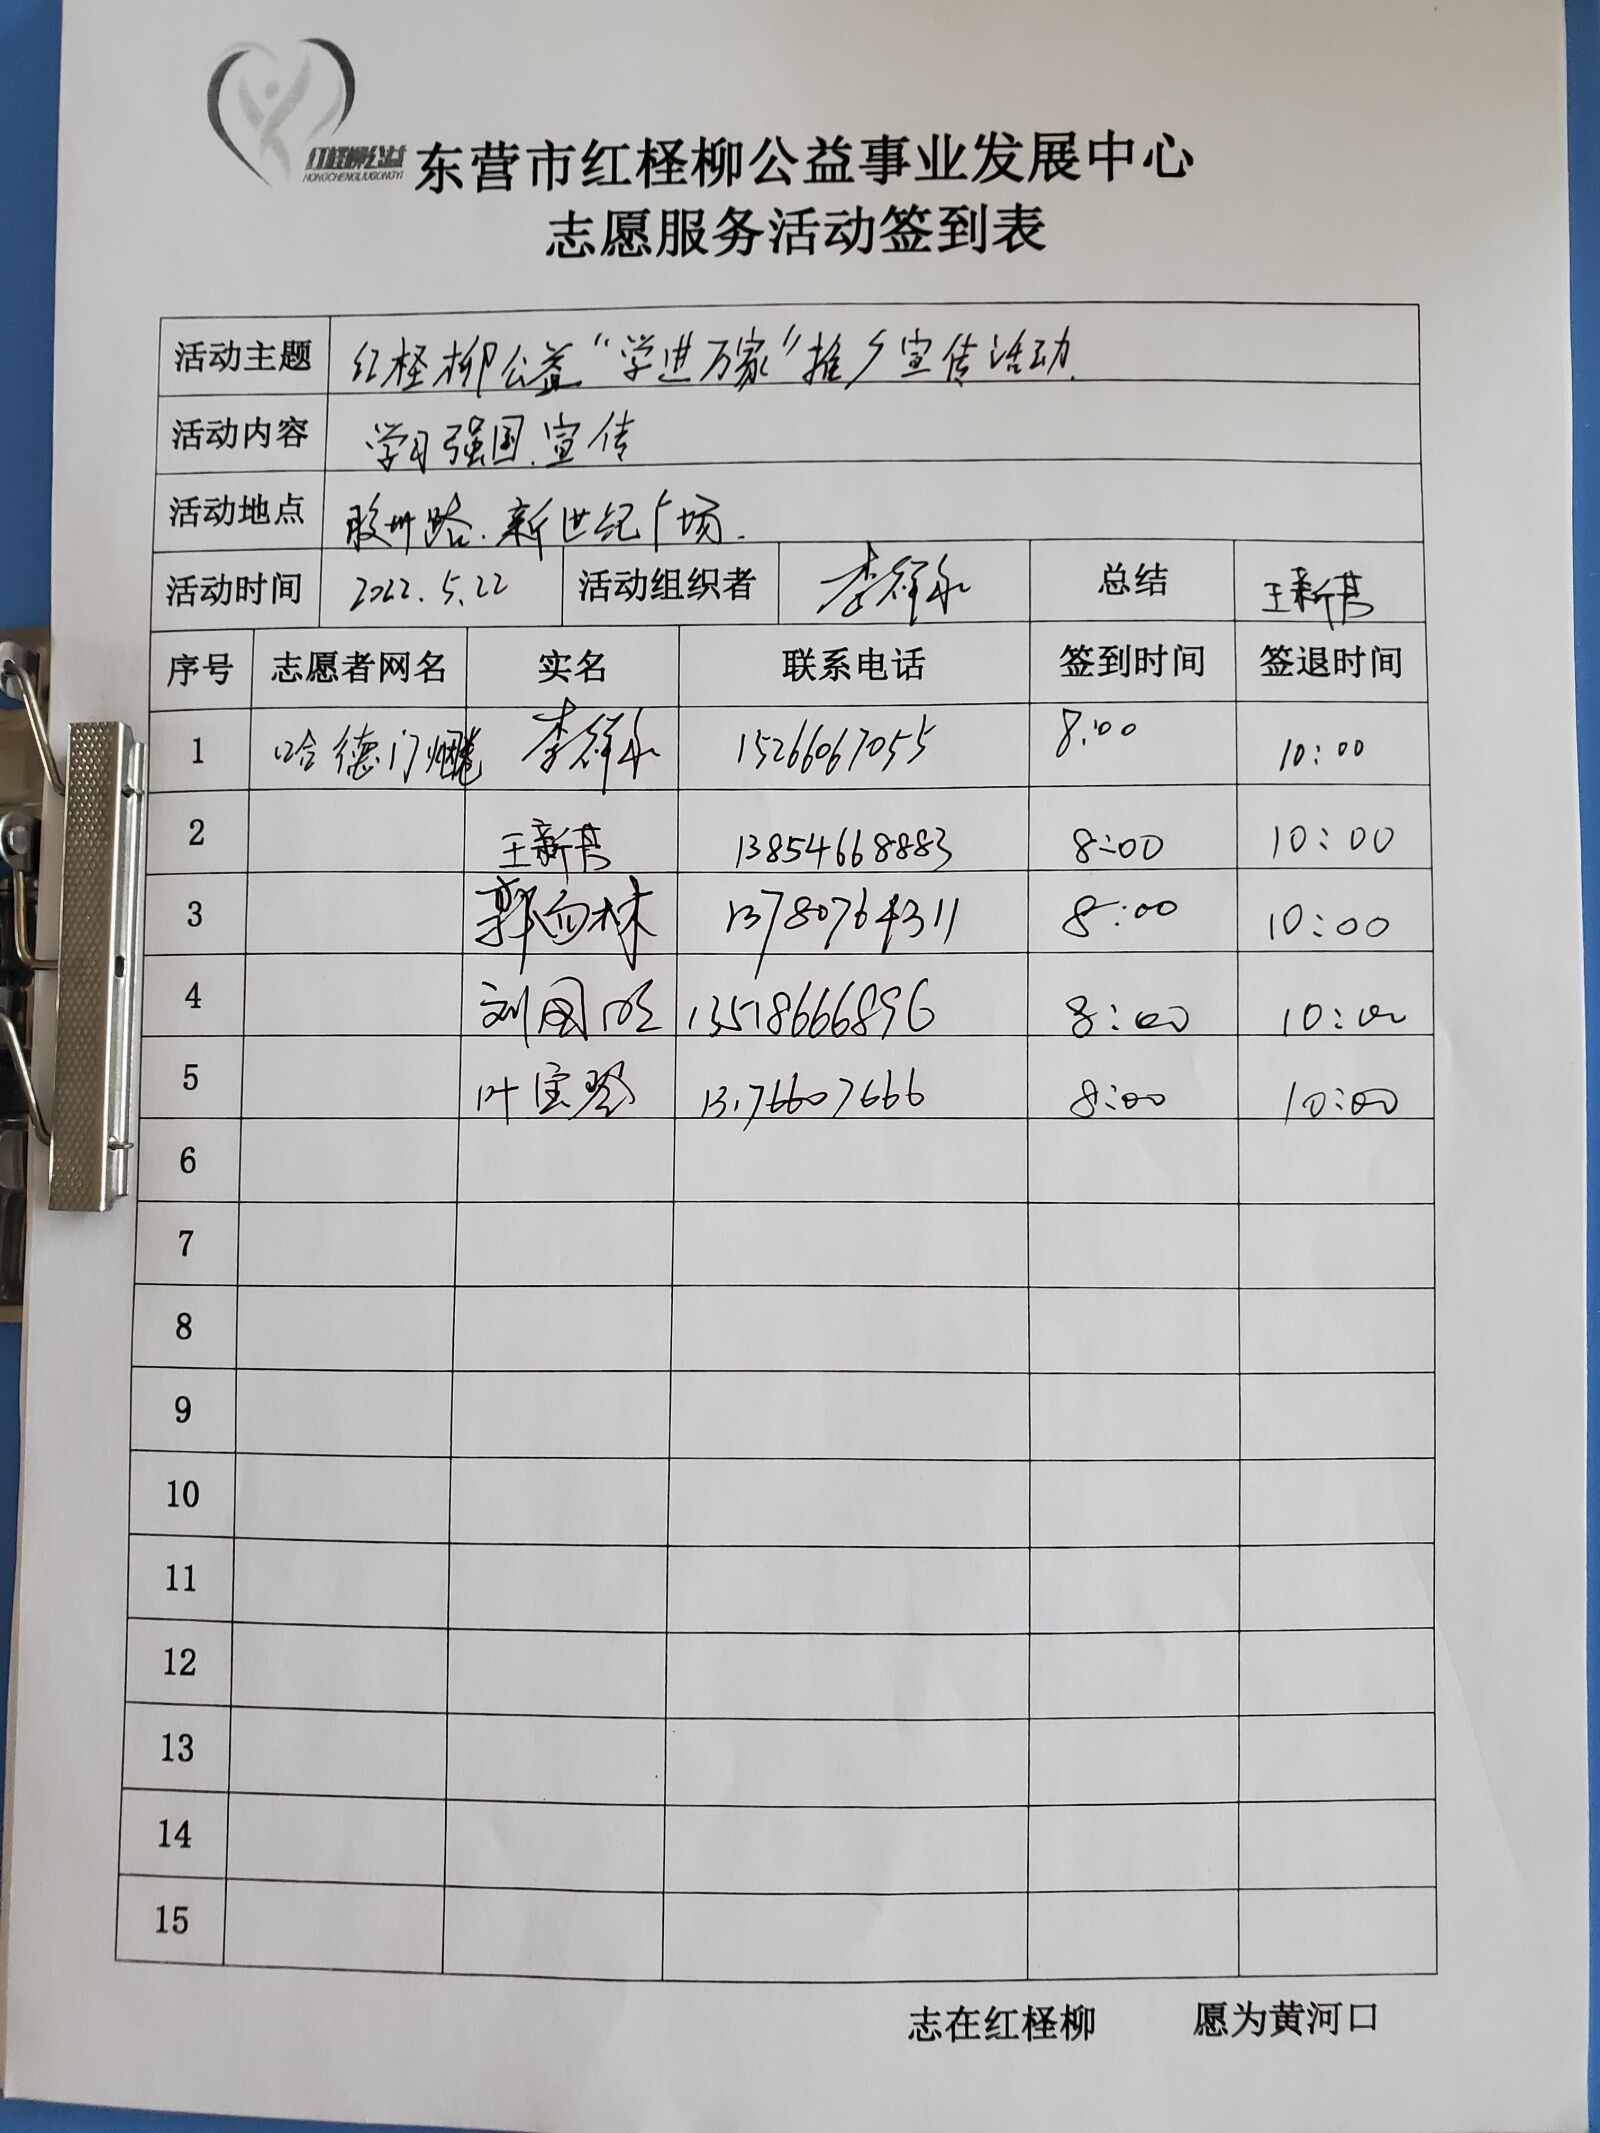 红柽柳公益
HONGCHENGLIUGONGYI
东营市红柽柳公益事业发展中心
志愿服务活动签到表
活动主题 红柽柳公益“学进万家”推广宣传活动.
活动内容 学习强国.宣传
活动地点 胶州路.新世纪广场.
活动时间 2022.5.22 活动组织者 李祥永 总结 王新
序号 志愿者网名 实名 联系电话 签到时间 签退时间
1 哈德门 李祥永 15266067055 8:00 10:00
2 王新 13854668883 8:00 10:00
3 郭向林 13780764311 8:00 10:00
4 刘国 8:00 10:00
5 叶宝 8:00 10:00
6
7
8
9
10
11
12
13
14
15
志在红柽柳 愿为黄河口